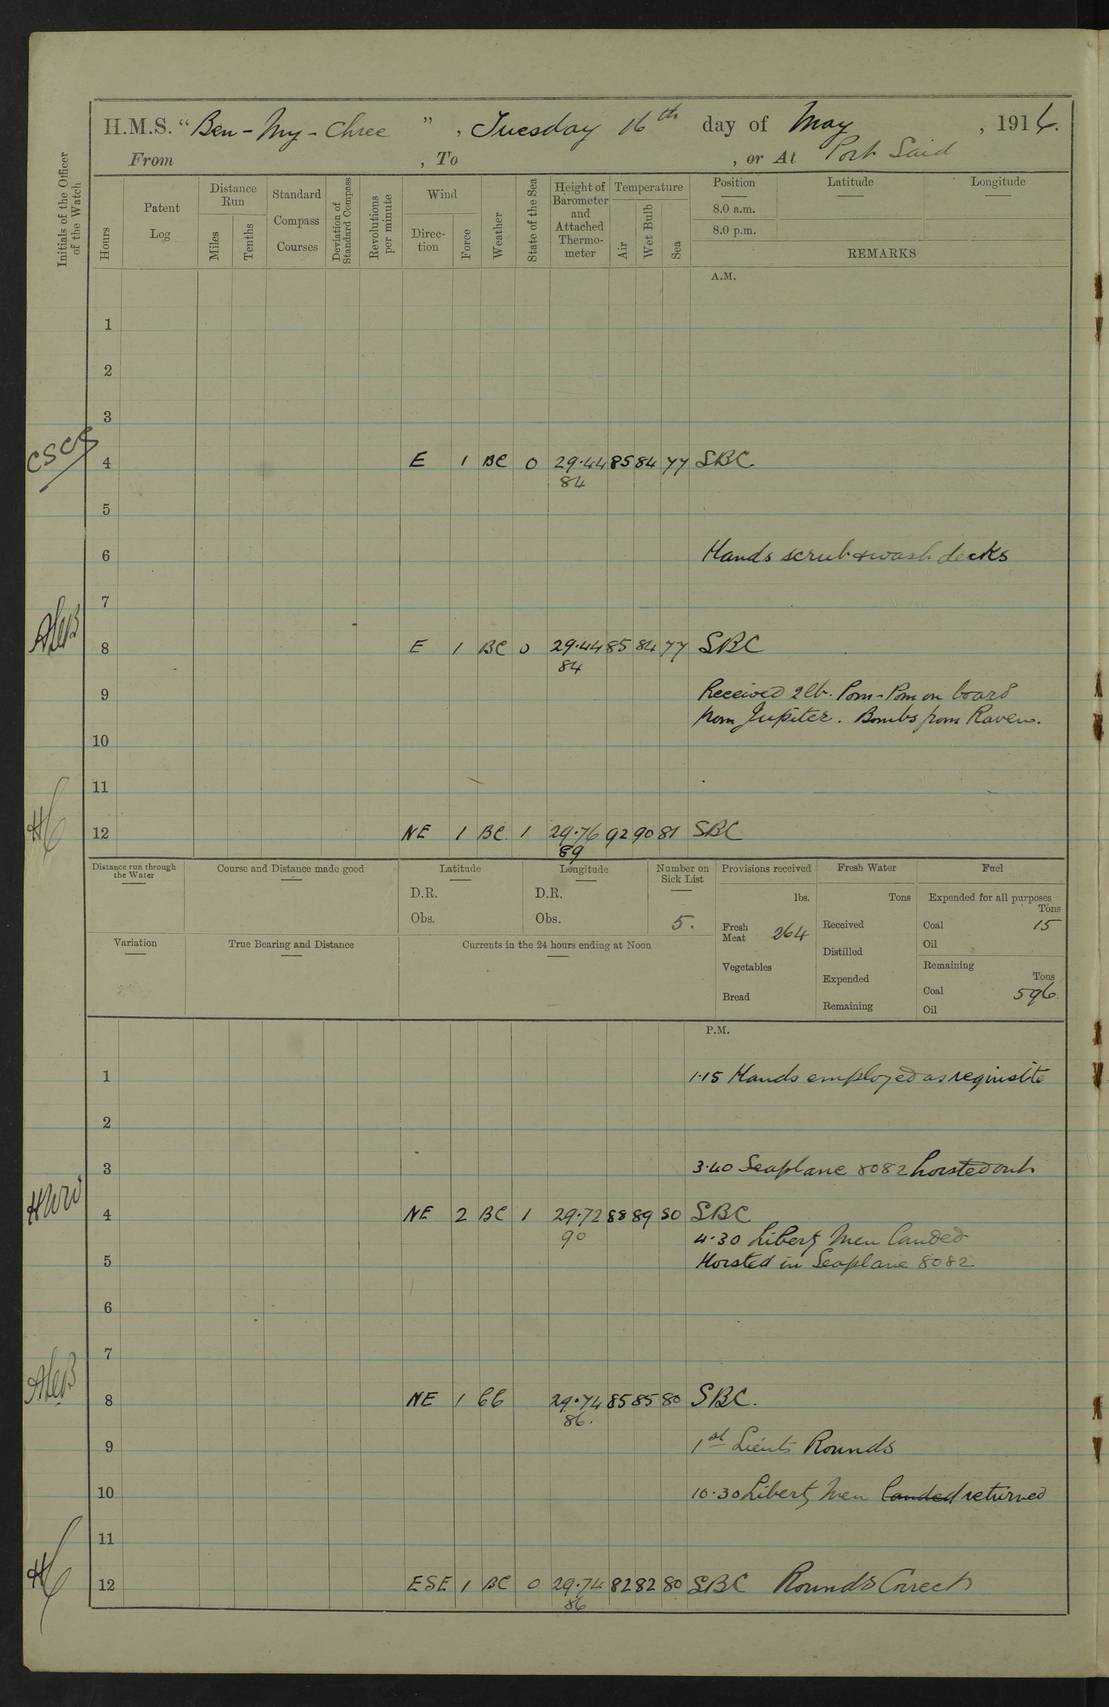 H.M.S. “Ben-My-Chree” , Tuesday 16th day of May , 1916.
From , To , or At Port Said
Initials of the Officer of the Watch
Hours
Patent Log
Distance Run
Miles
Tenths
Standard Compass Courses
Deviation of Standard Compass
Revolutions per minute
Wind
Direc-tion
Force
Weather
State of the Sea
Height of Barometer and Attached Thermo-meter
Temperature
Air
Wet Bulb
Sea
Position
Latitude
Longitude
8.0 a.m.
8.0 p.m.
REMARKS
A.M.
1
2
3
CSCG
4 E 1 BC 0 29.44 85 84 77 SBC
84
5
6 Hands scrub & wash decks
7
8 E 1 BC 0 29.44 85 84 77 SBC
84
9 Received 2 lb. Pom-Pom on board
from Jupiter. Bombs from Raven.
10
11
12 NE 1 BC 1 29.76 92 90 81 SBC
89
Distance run through the Water
Course and Distance made good
Latitude
D.R.
Obs.
Longitude
D.R.
Obs.
Number on Sick List
5.
Provisions received
lbs.
Fresh Meat 264
Vegetables
Bread
Fresh Water
Tons
Received
Distilled
Expended
Remaining
Fuel
Expended for all purposes
Tons
Coal 15
Oil
Remaining
Tons
Coal 596
Oil
Variation
True Bearing and Distance
Currents in the 24 hours ending at Noon
P.M.
1 1.15 Hands employed as requisite
2
3 3.40 Seaplane 8082 hoisted out
HWW
4 NE 2 BC 1 29.72 88 89 80 SBC
90
4.30 Liberty Men landed
5 Hoisted in Seaplane 8082
6
7
8 NE 1 bb 29.74 85 85 80 SBC.
86.
9 1st Lieuts Rounds
10 10.30 Liberty Men landed returned
11
12 ESE 1 BC 0 29.74 82 82 80 SBC Rounds Correct
86